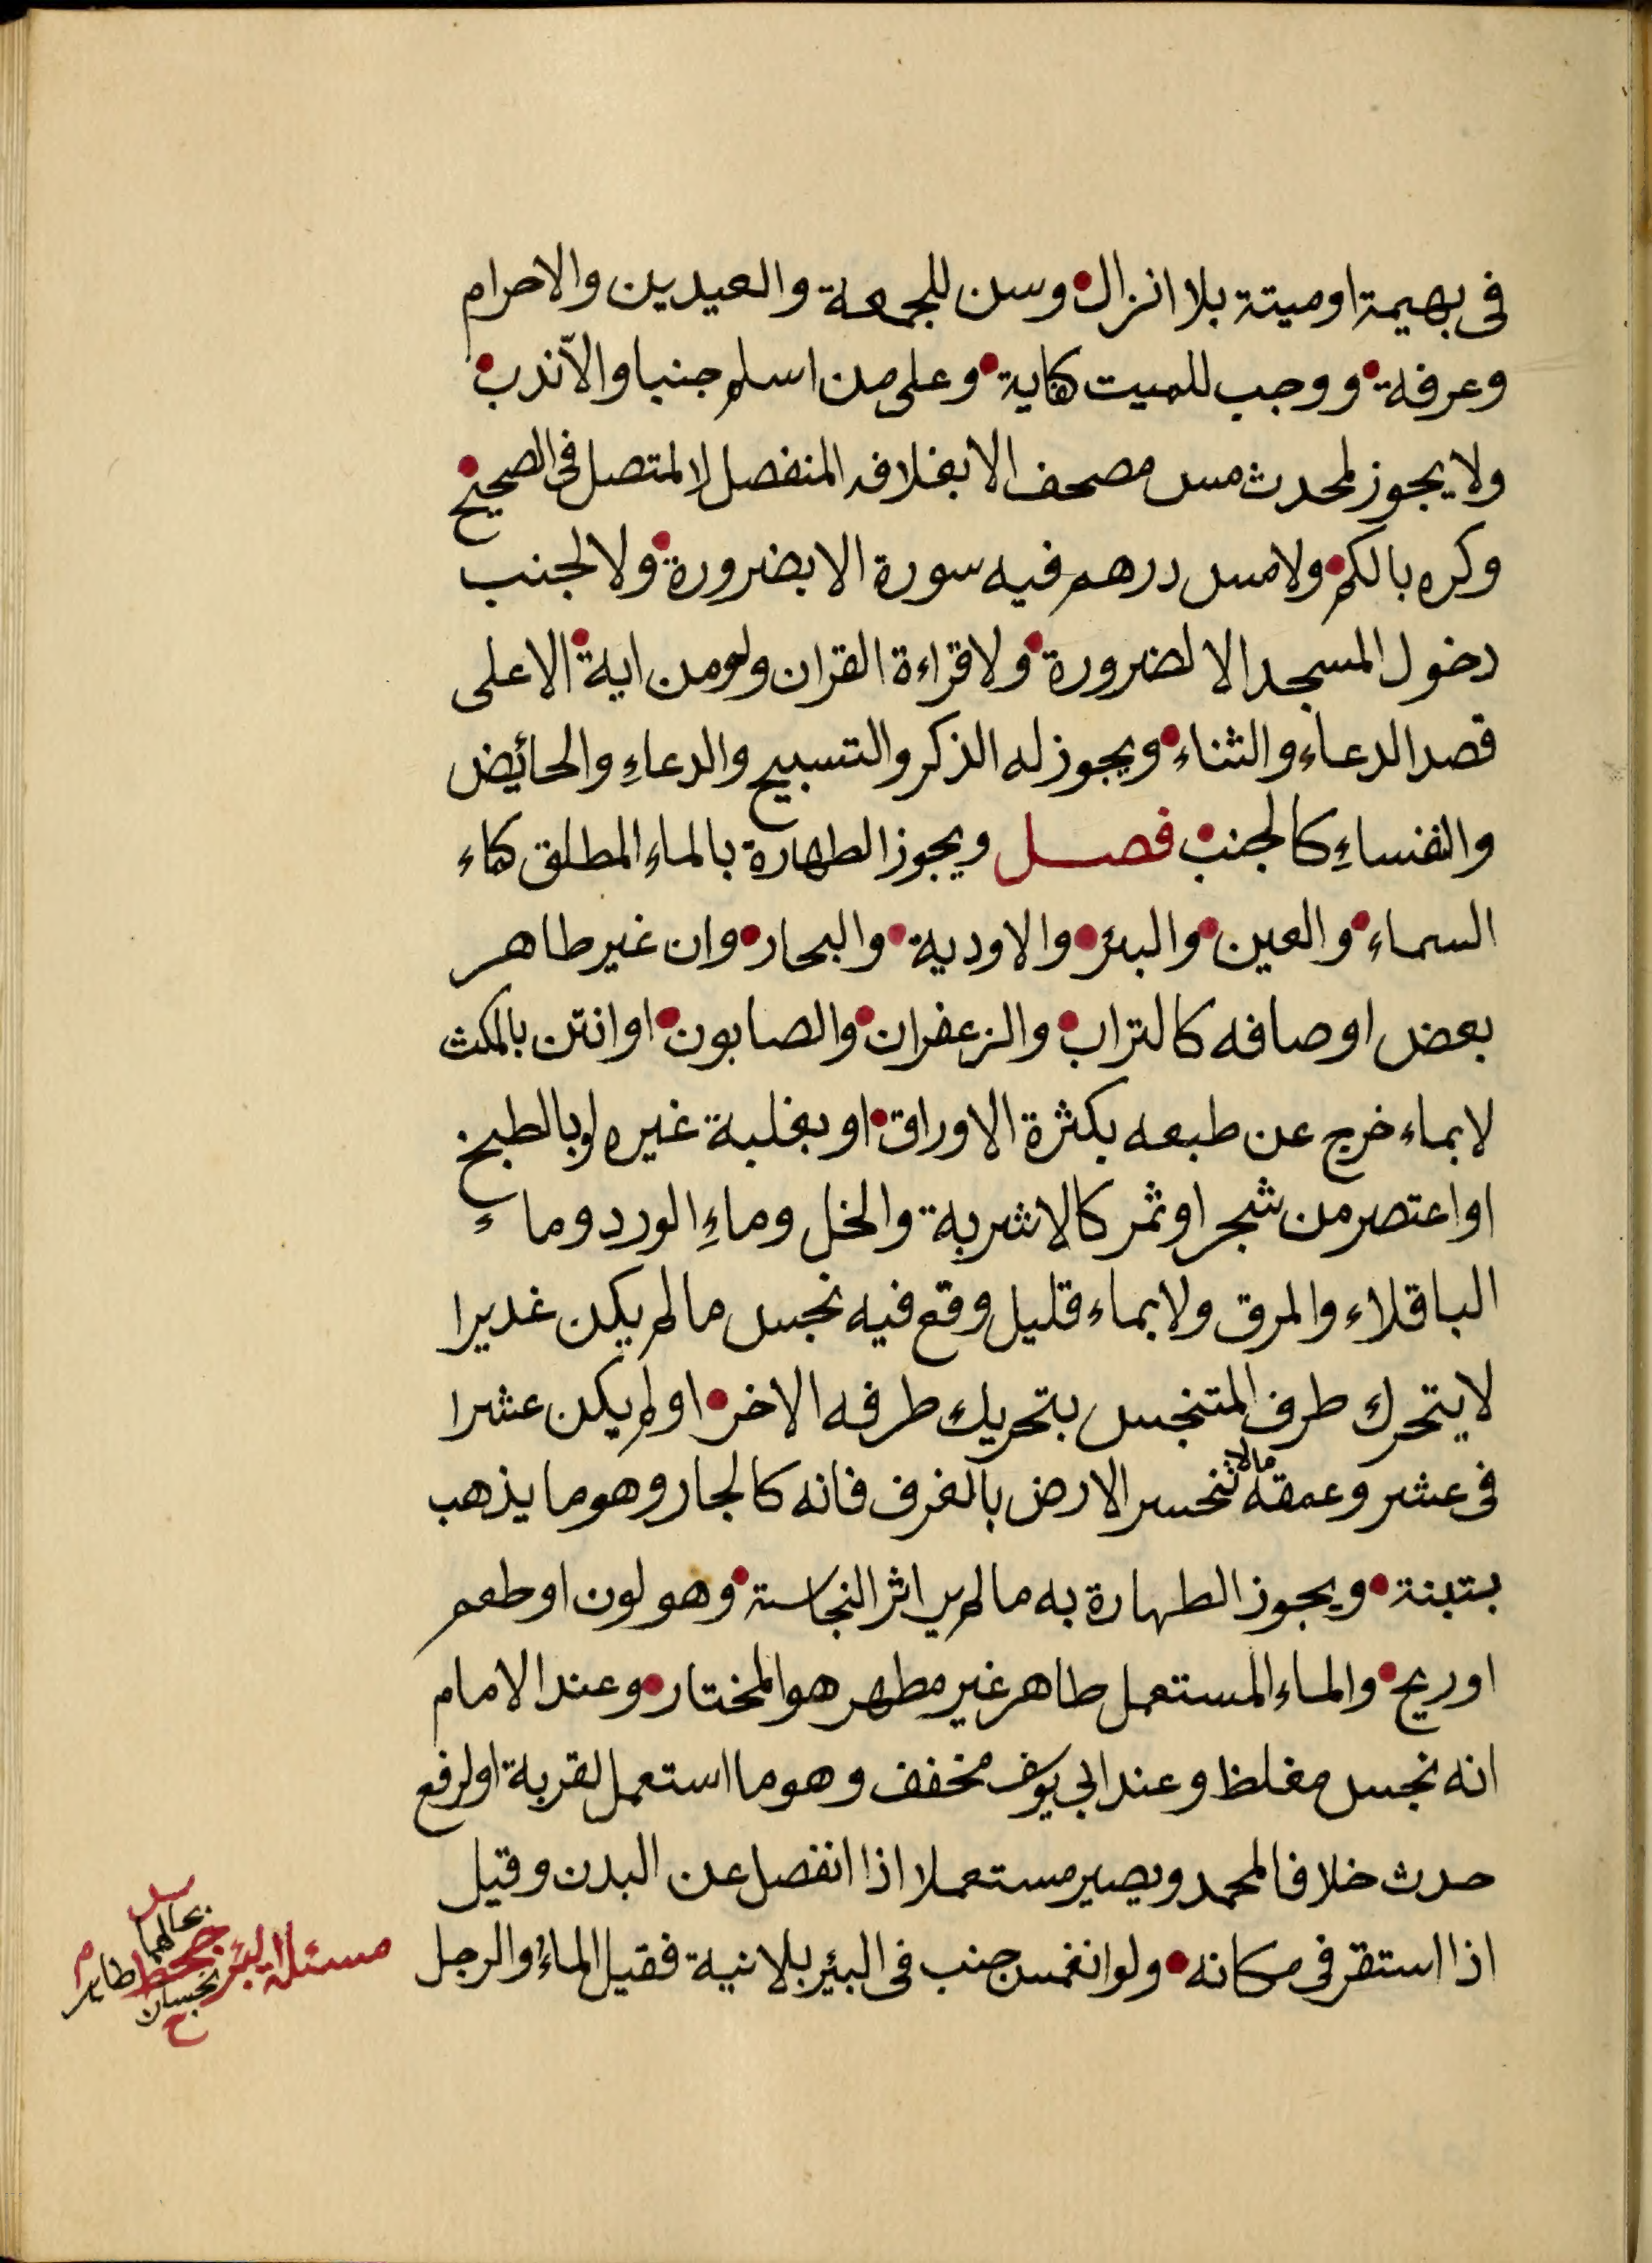 فى بهيمة او ميتة بلا انزال وسن للجمعة والعيدين والاحرام
وعرفة ووجب للميت كفاية وعلى من اسلم جنبا والا ندب
ولا يجوز لمحدث مس مصحف الا بغلافه المنفصل لا المتصل فى الصحيح
وكره بالكم ولا مس درهم فيه سورة الا بضرورة ولا لجنب
دخول المسجد الا لضرورة ولا قراءة القران ولو من اية الا على
قصد الدعاء والثناء ويجوز له الذكر والتسبيح والدعاءِ والحائيض
والنفساءِ كالجنب فصل ويجوز الطهارة بالماء المطلق كماء
السماء والعين والبئر والاودية والبحار وان غير طاهر
بعض اوصافه كالتراب والزعفران والصابون او انتن بالمكث
لا بماء خرج عن طبعه بكثرة الاوراق او بغلبة غيره او بالطبخ
او اعتصر من شجر او ثمر كالاشربة والخل وماءِ الورد وماء
الباقلاء والمرق ولا بماء قليل وقع فيه نجس ما لم يكن غديرا
لا يتحرك طرف المتنجس بتحريك طرفه الاخر او لم يكن عشرا
فى عشر وعمقه مالا تنحسر الارض بالغرف فانه كالجار وهو ما يذهب
بتبنة ويجوز الطهارة به ما لم ير اثر النجاسة وهو لون او طعم
او ريح والماء المستعمل طاهر غير مطهر هو المختار وعند الامام
انه نجس مغلظ وعند ابى يوسف مخفف وهو ما استعمل لقربة او لرفع
حدث خلافا لمحمد ويصير مستعملا اذا انفصل عن البدن وقيل
اذا استقر فى مكانه ولو انغمس جنب فى البئير بلا نية فقيل الماء والرجل
مسئلة البئر جحط
س
بحالهما
نجسان
ح
طاهر
م